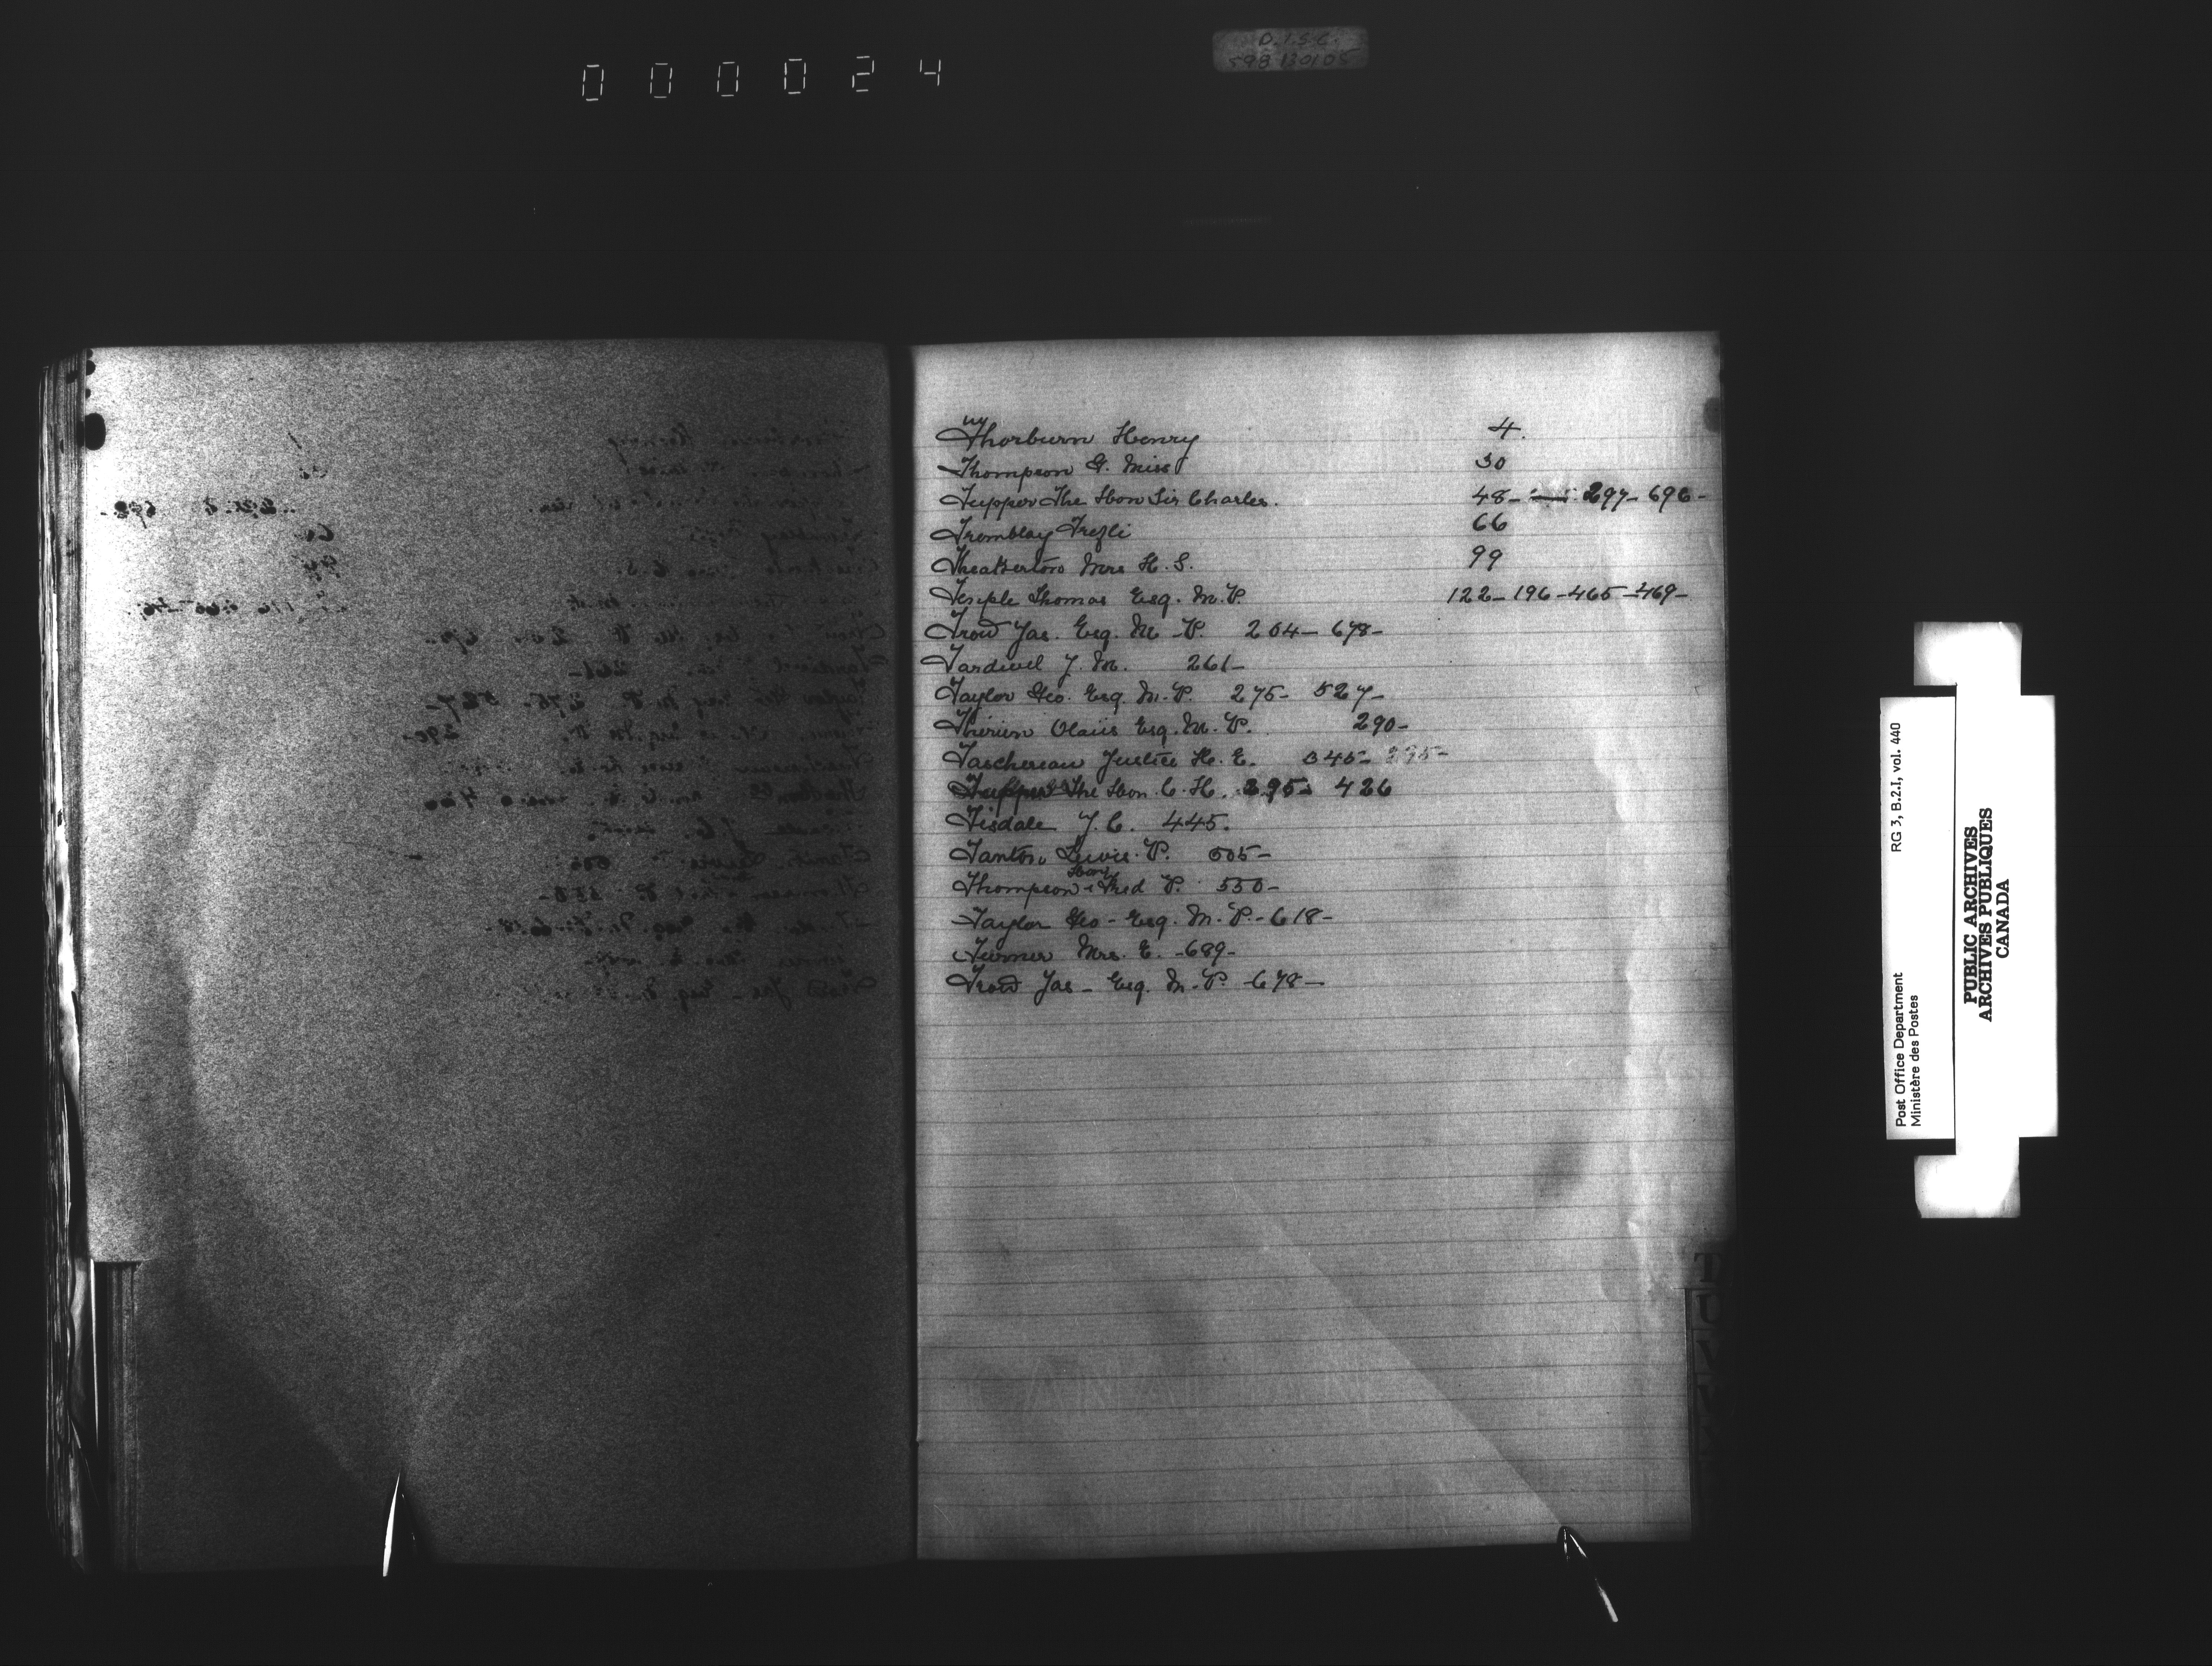 000024
D.I.S.C.
Thorburn Henry 4.
Thompson G. Miss 30
Tupper The Hon Sir Charles. 48- 297- 696-
Tremblay Trefli 66
Theakerton Mrs H. S. 99
Temple Thomas Esq. M.P. 122- 196- 465- 469-
Trow Jas. Esq. M-P. 204- 678-
Tardivel J. M. 261-
Taylor Geo. Esq. M.P. 275- 527-
Thérien Olaüs Esq. M.P. 290-
Taschereau Justice H. E. 345- 395-
Tupper The Hon. C. H. 395- 426
Tisdale J. C. 445.
Tanton Lewis. P. 505-
Hon
Thompson Fred P. 550-
Taylor Geo- Esq. M.P.- 618-
Turner Mrs. E. -689-
Trow Jas- Esq. M.P- 678-
T
U
V
W
RG 3, B.2.I, vol. 440
Post Office Department
Ministère des Postes
PUBLIC ARCHIVES
ARCHIVES PUBLIQUES
CANADA